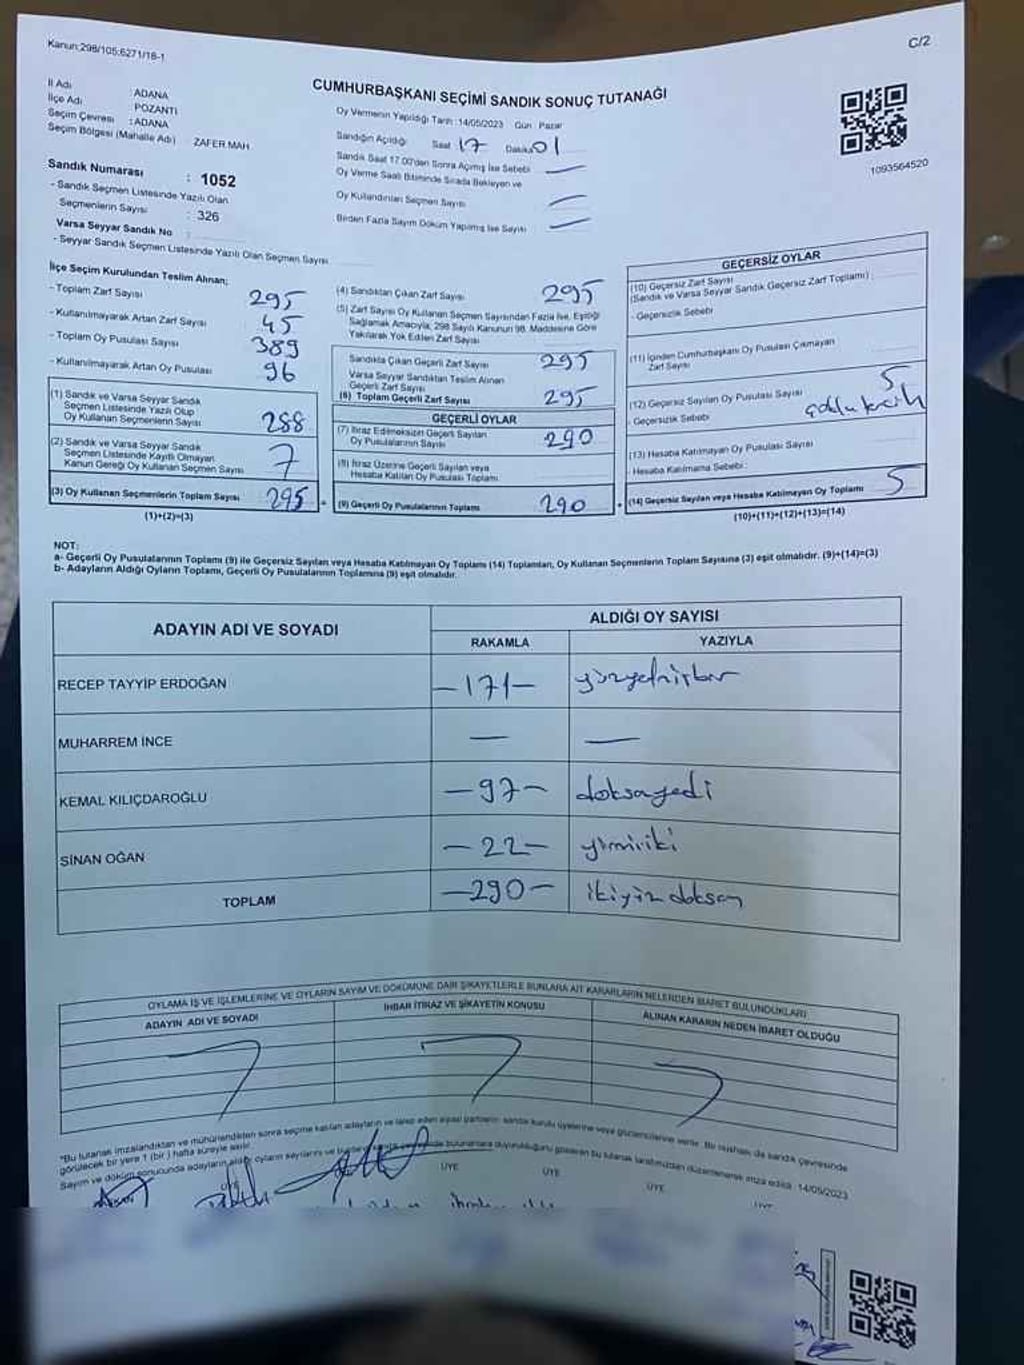 Kanun:298/105;6271/18-1
C/2
CUMHURBAŞKANI SEÇİMİ SANDIK SONUÇ TUTANAĞI
İl Adı : ADANA
İlçe Adı : POZANTI
Seçim Çevresi : ADANA
Seçim Bölgesi (Mahalle Adı) ZAFER MAH
Oy Vermenin Yapıldığı Tarih :14/05/2023 Gün : Pazar
Sandığın Açıldığı Saat 17 Dakika 01
Sandık Saat 17.00'den Sonra Açımış İse Sebebi —
Oy Verme Saati Bitiminde Sırada Bekleyen ve
Oy Kullandırılan Seçmen Sayısı —
Birden Fazla Sayım Döküm Yapılmış İse Sayısı —
1093564520
Sandık Numarası : 1052
- Sandık Seçmen Listesinde Yazılı Olan
Seçmenlerin Sayısı : 326
Varsa Seyyar Sandık No :
- Seyyar Sandık Seçmen Listesinde Yazılı Olan Seçmen Sayısı
İlçe Seçim Kurulundan Teslim Alınan;
- Toplam Zarf Sayısı 295
- Kullanılmayarak Artan Zarf Sayısı 45
- Toplam Oy Pusulası Sayısı 389
- Kullanılmayarak Artan Oy Pusulası 96
(1) Sandık ve Varsa Seyyar Sandık
Seçmen Listesinde Yazılı Olup
Oy Kullanan Seçmenlerin Sayısı 288
(2) Sandık ve Varsa Seyyar Sandık
Seçmen Listesinde Kayıtlı Olmayan
Kanun Gereği Oy Kullanan Seçmen Sayısı 7
(3) Oy Kullanan Seçmenlerin Toplam Sayısı 295 =
(1)+(2)=(3)
(4) Sandıktan Çıkan Zarf Sayısı 295
(5) Zarf Sayısı Oy Kullanan Seçmen Sayısından Fazla İse, Eşitliği
Sağlamak Amacıyla; 298 Sayılı Kanunun 98. Maddesine Göre
Yakılarak Yok Edilen Zarf Sayısı
Sandıkta Çıkan Geçerli Zarf Sayısı 295
Varsa Seyyar Sandıktan Teslim Alınan
Geçerli Zarf Sayısı
(6) Toplam Geçerli Zarf Sayısı 295
GEÇERLİ OYLAR
(7) İtiraz Edilmeksizin Geçerli Sayılan
Oy Pusulalarının Sayısı 290
(8) İtiraz Üzerine Geçerli Sayılan veya
Hesaba Katılan Oy Pusulası Toplamı
(9) Geçerli Oy Pusulalarının Toplamı 290 +
GEÇERSİZ OYLAR
(10) Geçersiz Zarf Sayısı
(Sandık ve Varsa Seyyar Sandık Geçersiz Zarf Toplamı) :
- Geçersizlik Sebebi
(11) İçinden Cumhurbaşkanı Oy Pusulası Çıkmayan
Zarf Sayısı
(12) Geçersiz Sayılan Oy Pusulası Sayısı 5
- Geçersizlik Sebebi
(13) Hesaba Katılmayan Oy Pusulası Sayısı
- Hesaba Katılmama Sebebi :
(14) Geçersiz Sayılan veya Hesaba Katılmayan Oy Toplamı 5
(10)+(11)+(12)+(13)=(14)
NOT:
a- Geçerli Oy Pusulalarının Toplamı (9) ile Geçersiz Sayılan veya Hesaba Katılmayan Oy Toplamı (14) Toplamları, Oy Kullanan Seçmenlerin Toplam Sayısına (3) eşit olmalıdır. (9)+(14)=(3)
b- Adayların Aldığı Oyların Toplamı, Geçerli Oy Pusulalarının Toplamına (9) eşit olmalıdır.
ADAYIN ADI VE SOYADI
ALDIĞI OY SAYISI
RAKAMLA YAZIYLA
RECEP TAYYİP ERDOĞAN —171— yüzyetmişbir
MUHARREM İNCE — —
KEMAL KILIÇDAROĞLU —97— doksayedi
SİNAN OĞAN —22— yirmiiki
TOPLAM —290— ikiyüz doksan
OYLAMA İŞ VE İŞLEMLERİNE VE OYLARIN SAYIM VE DÖKÜMÜNE DAİR ŞİKAYETLERLE BUNLARA AİT KARARLARIN NELERDEN İBARET BULUNDUKLARI
ADAYIN ADI VE SOYADI
İHBAR İTİRAZ VE ŞİKAYETİN KONUSU
ALINAN KARARIN NEDEN İBARET OLDUĞU
*Bu tutanak imzalandıktan ve mühürlendikten sonra seçime katılan adayların ve talep eden siyasi partilerin sandık kurulu üyelerine veya gözlemcilerine verilir. Bir nüshası da sandık çevresinde
görülecek bir yere 1 (bir) hafta süreyle asılır.
Sayım ve döküm sonucunda adayların aldığı oyların sayılarını ve bulunanlara duyurulduğunu gösteren bu tutanak tarafımızdan düzenlenerek imza edildi. 14/05/2023
ÜYE ÜYE ÜYE ÜYE ÜYE